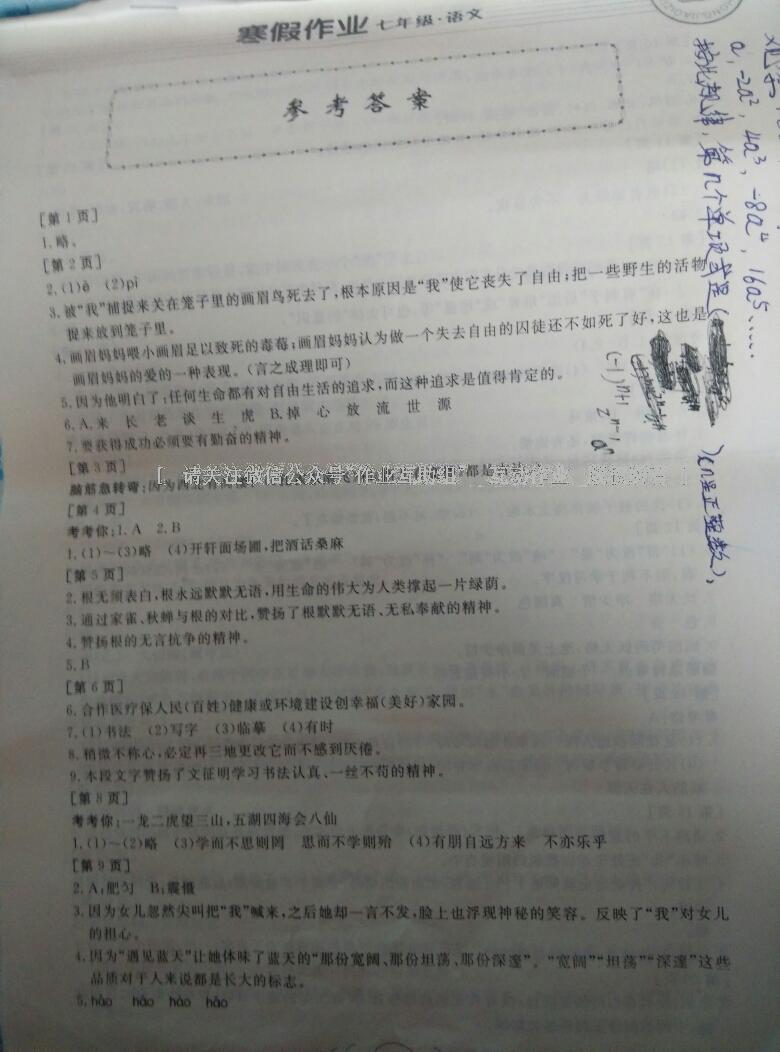 寒假作业 七年级·语文
参考答案
[第1页]
1.略。
[第2页]
2.(1)è (2)pǐ
3.被“我”捕捉来关在笼子里的画眉鸟死去了,根本原因是“我”使它丧失了自由;把一些野生的活物
捉来放到笼子里。
4.画眉妈妈喂小画眉足以致死的毒莓;画眉妈妈认为做一个失去自由的囚徒还不如死了好,这也是
画眉妈妈的爱的一种表现。(言之成理即可)
5.因为他明白了:任何生命都有对自由生活的追求,而这种追求是值得肯定的。
6.A.来 长 老 谈 生 虎 B.掉 心 放 流 世 源
7.要获得成功必须要有勤奋的精神。
[第3页]
脑筋急转弯:因为西北有高楼
请关注微信公众号"作业互助组"
[第4页]
考考你:1.A 2.B
1.(1)~(3)略 (4)开轩面场圃,把酒话桑麻
[第5页]
2.根无须表白,根永远默默无语,用生命的伟大为人类撑起一片绿荫。
3.通过家雀、秋蝉与根的对比,赞扬了根默默无语、无私奉献的精神。
4.赞扬根的无言抗争的精神。
5.B
[第6页]
6.合作医疗保人民(百姓)健康或环境建设创幸福(美好)家园。
7.(1)书法 (2)写字 (3)临摹 (4)有时
8.稍微不称心,必定再三地更改它而不感到厌倦。
9.本段文字赞扬了文征明学习书法认真、一丝不苟的精神。
[第8页]
考考你:一龙二虎望三山,五湖四海会八仙
1.(1)~(2)略 (3)学而不思则罔 思而不学则殆 (4)有朋自远方来 不亦乐乎
[第9页]
2.A:肥匀 B:震慑
3.因为女儿忽然尖叫把“我”喊来,之后她却一言不发,脸上也浮现神秘的笑容。反映了“我”对女儿
的担心。
4.因为“遇见蓝天”让她体味了蓝天的“那份宽阔、那份坦荡、那份深邃”。“宽阔”“坦荡”“深邃”这些
品质对于人来说都是长大的标志。
5.hǎo hǎo hào hǎo
a, -2a², 4a³, -8a⁴, 16a5……
按此规律,第n个单项式是( )(n是正整数),
(-1)ⁿ⁺¹ 2ⁿ⁻¹ aⁿ